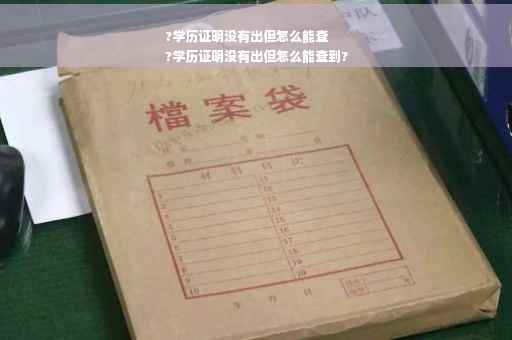 ?学历证明没有出但怎么能查
?学历证明没有出但怎么能查到?
檔案袋
材料目次
1 11
2 12
3 13
4 14
5 15
6 16
7 17
8 18
9 19
10 20
年 月 日